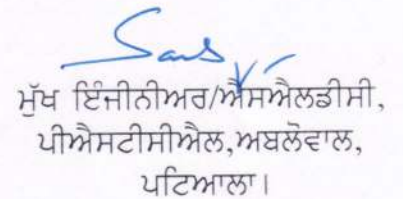 ਮੁੱਖ ਇੰਜੀਨੀਅਰ/ਐਸਐਲਡੀਸੀ,
ਪੀਐਸਟੀਸੀਐਲ,ਅਬਲੋਵਾਲ,
ਪਟਿਆਲਾ।